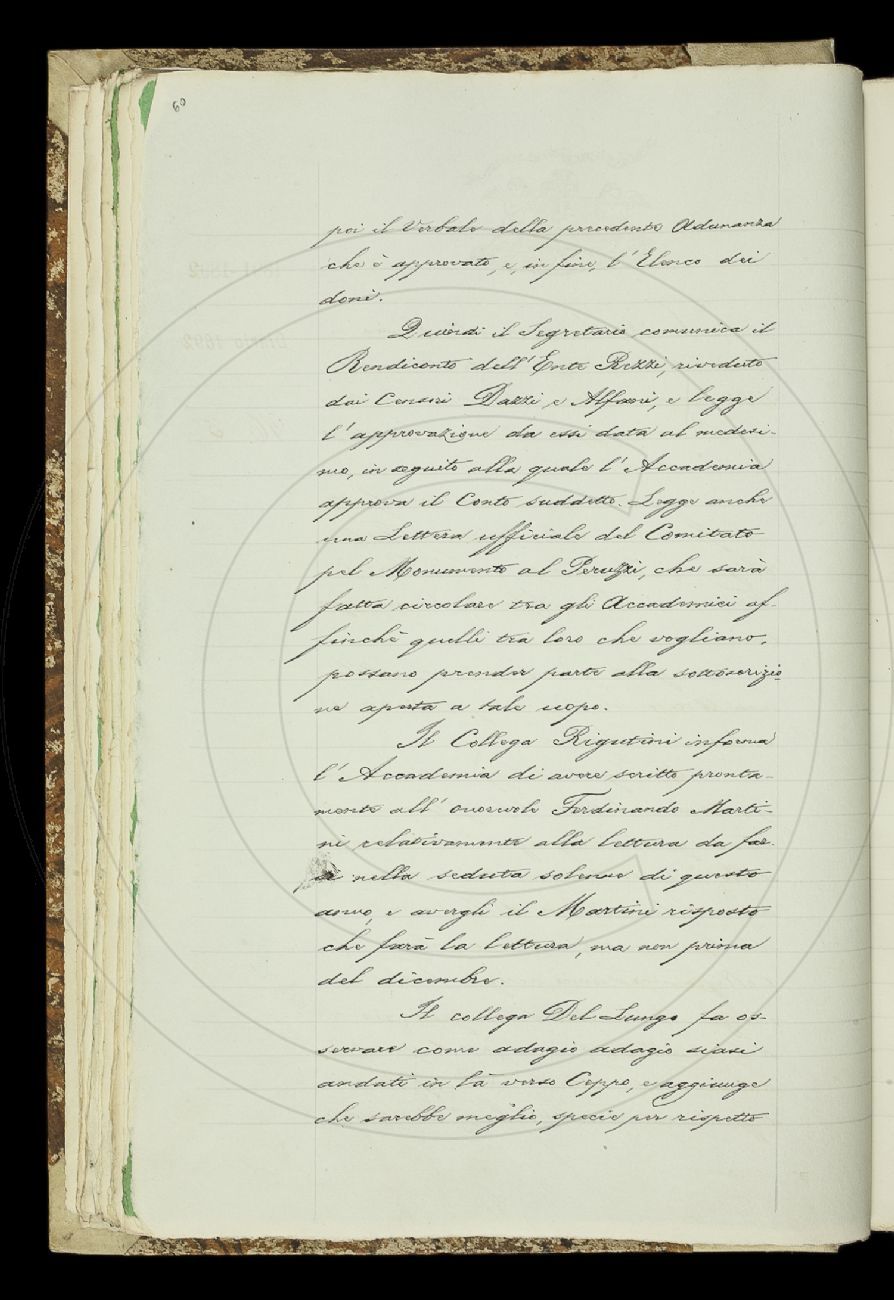 60
poi il Verbale della precedente Adunanza
che è approvato, e, in fine, l'Elenco dei
doni.
Quindi il Segretario comunica il
Rendiconto dell'Ente Rezzi, riveduto
dai Censori Dazzi e Alfani, e legge
l'approvazione da essi data al medesi-
mo, in seguito alla quale l'Accademia
approva il Conto suddetto. Legge anche
una Lettera ufficiale del Comitato
pel Monumento al Peruzzi, che sarà
fatta circolare tra gli Accademici af-
finchè quelli tra loro che vogliano,
possano prender parte alla sottoscrizio-
ne aperta a tale scopo.
Il Collega Rigutini informa
l'Accademia di avere scritto pronta-
mente all'onorevole Ferdinando Marti-
ni relativamente alla lettura da far-
si nella seduta solenne di questo
anno, e avergli il Martini risposto
che farà la lettura, ma non prima
del dicembre.
Il collega Del Lungo fa os-
servare come adagio adagio siasi
andati in là verso Ceppo, e aggiunge
che sarebbe meglio, specie per rispetto